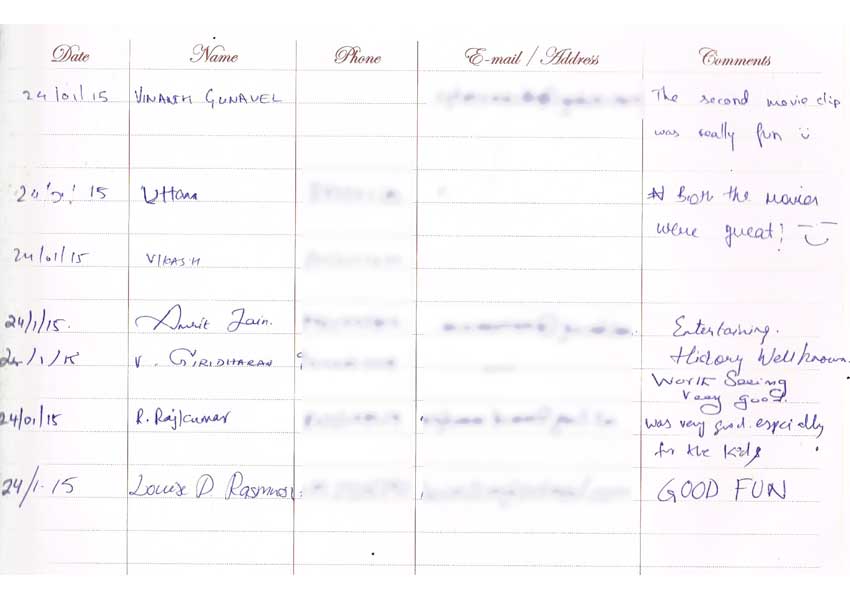 Date Name Phone E-mail / Address Comments
24/01/15 VINANTH GUNAVEL The second movie clip
was really fun ü
24/01/15 Uttara Both the movies
were great!
24/01/15 VIKASH
24/1/15. Amrit Jain. Entertaining.
24/1/15 V. GIRIDHARAN History Wellknown.
Worth Seeing
Very good.
24/01/15 R. Rajkumar was very good. especially
for the kids
24/1.15 Louise D Rasmus GOOD FUN